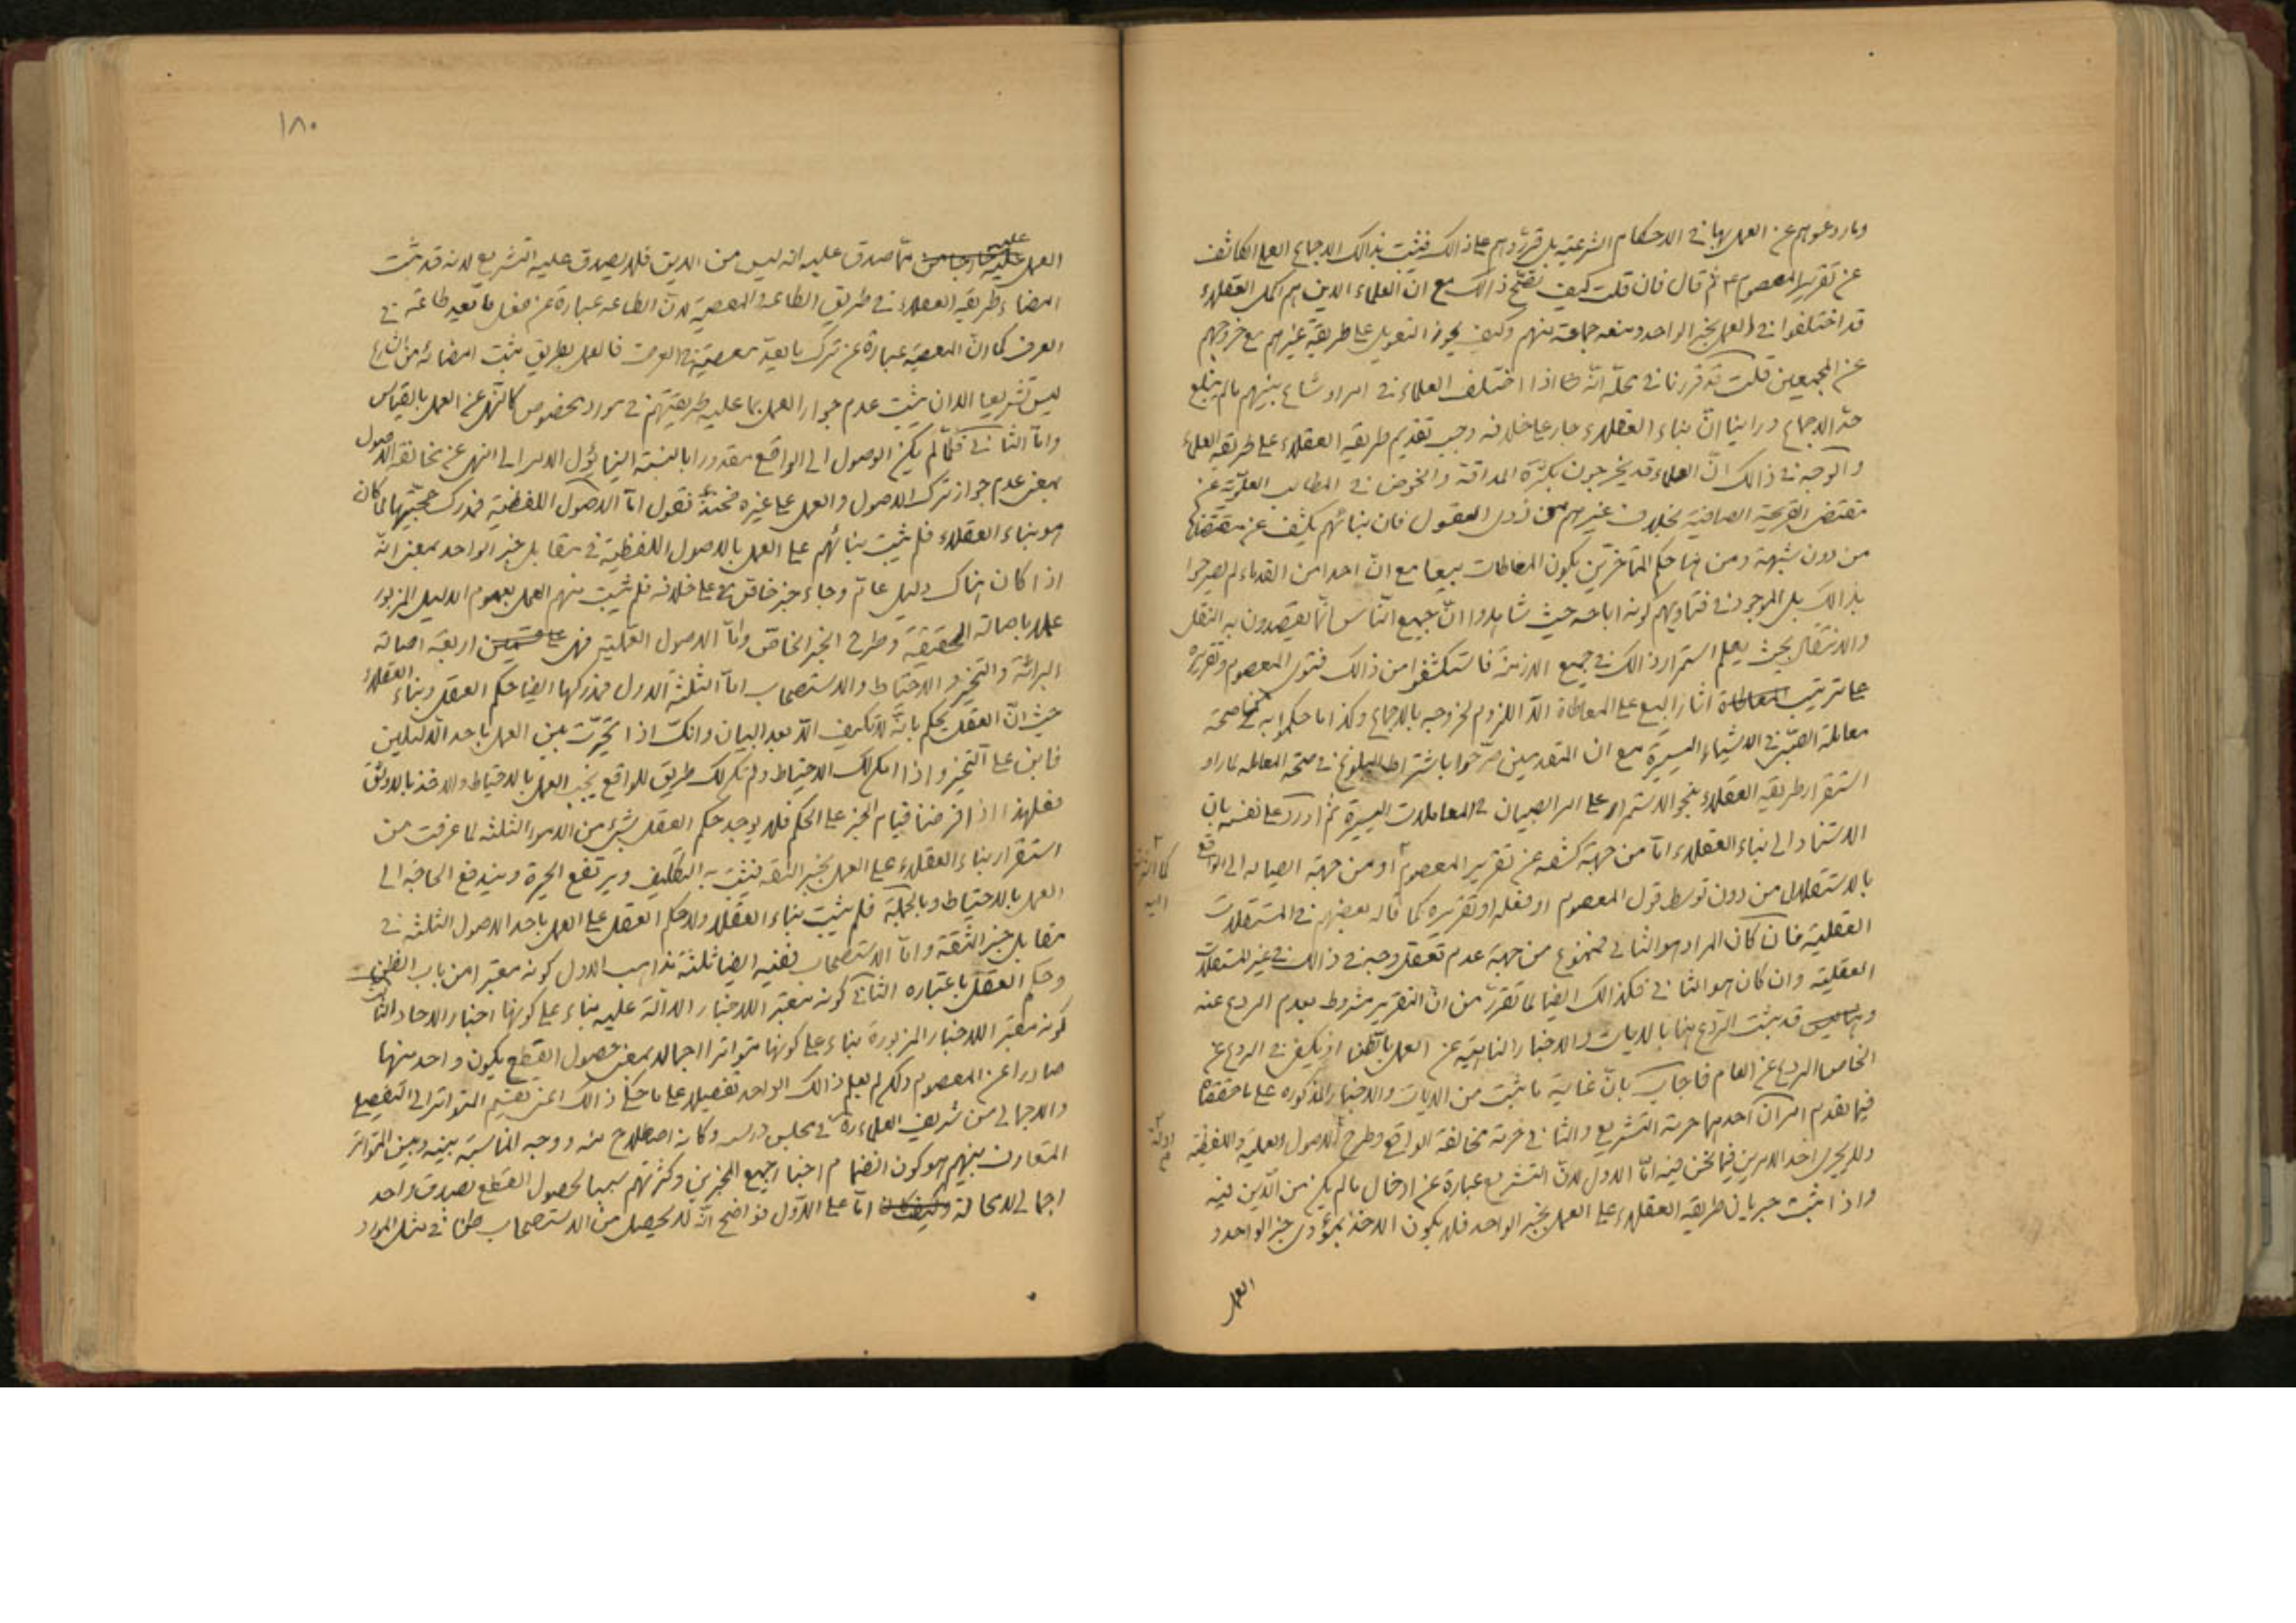 وما ردعوهم عن العمل بها في الاحكام الشرعية بل قرروهم على ذالك فيثبت بذالك الاجماع العملى الكاشف
عن تقرير المعصوم ع ثم قال فان قلت كيف يصح ذالك مع ان العلماء الذين هم اكمل العقلاء
قد اختلفوا في العمل بخبر الواحد ومنعه جماعة منهم وكيف يجوز التعويل على طريقة غيرهم مع خروجهم
عن المجمعين قلت قد قررنا في محله انه اذا اختلف العلماء في امر وشاع بينهم ما لم يبلغ
حد الاجماع وراينا ان بناء العقلاء جار على خلافه وجب تقديم طريقة العقلاء على طريقة العلماء
والوجه في ذالك ان العلماء قد يخرجون بكثرة المداقة والخوض في المطالب العلمية عن
مقتضى القريحة الصافية بخلاف غيرهم من ذوى العقول فان بنائهم يكشف عن مقتضاها
من دون شبهة ومن هنا حكم المتأخرين بكون المعاطات بيعا مع ان احدا من القدماء لم يصرحوا
بذالك بل الموجود في فتاويهم كونه اباحه حيث شاهدوا ان جميع الناس انما يقصدون به النقل
والانتقال بحيث يعلم استمرار ذالك في جميع الازمنة فاستكشفوا من ذالك فتوى المعصوم وتقريره
على ترتيب اثار البيع على المعاطاة الا اللزوم لخروجه بالاجماع وكذا ما حكموا به من صحة
معاملة الصبى في الاشياء اليسيرة مع ان المتقدمين صرحوا باشتراط البلوغ في صحة المعاملة لما راو
استقرار طريقة العقلاء بنحو الاستمرار على امر الصبيان في المعاملات اليسيرة ثم اورد على نفسه بان
الاستناد الى بناء العقلاء اما من جهة كشفه عن تقرير المعصوم او من جهة ايصاله الى الواقع
بالاستقلال من دون توسط قول المعصوم او فعله او تقريره كما قاله بعضهم في المستقلات
العقلية فان كان المراد هو الثانى فممنوع من جهة عدم تعقل وجه في ذالك في غير المستقلات
العقلية وان كان هو الثانى فكذالك ايضا لما تقرر من ان التقرير مشروط بعدم الردع عنه
قد ثبت الردع هنا بالايات والاخبار الناهية عن العمل بالظن اذ يكفى في الردع عن
الخاص الردع عن العام فاجاب بان غاية ما ثبت من الايات والاخبار المذكوره على ما حققنا
فيما تقدم امران احدهما حرمة التشريع والثانى حرمة مخالفة الواقع وطرح الاصول العملية واللفظية
ولا يجرى احد الامرين فيما نحن فيه اما الاول لان التشريع عبارة عن ادخال ما لم يكن من الدين فيه
واذا ثبت جريان طريقة العقلاء على العمل بخبر الواحد فلا يكون الاخذ بمؤدى خبر الواحد و
العمل
١٨٠
العمل عليه مما صدق عليه انه ليس من الدين فلا يصدق عليه التشريع لانه قد ثبت
امضاء طريقة العقلاء في طريق الطاعة والمعصية لان الطاعة عبارة عن فعل ما يعد طاعة في
العرف كما ان المعصية عبارة عن ترك ما يعد معصية في العرف فالعمل بطريق ثبت امضائه من الشارع
ليس تشريعا الا ان يثبت عدم جواز العمل بما عليه طريقتهم في مورد مخصوص كالنهى عن العمل بالقياس
واما الثانى فلما لم يكن الوصول الى الواقع مقدورا بالنسبة الينا يؤل الامر الى النهى عن مخالفة الاصول
بمعنى عدم جواز ترك الاصول والعمل على غيره فحينئذ نقول اما الاصول اللفظية فمدرك حجيتها لما كان
هو بناء العقلاء فلم يثبت بنائهم على العمل بالاصول اللفظية في مقابل خبر الواحد بمعنى انه
اذا كان هناك دليل عام وجاء خبر خاص على خلافه فلم يثبت منهم العمل بعموم الدليل المزبور
عملا باصالة الحقيقة وطرح الخبر الخاص واما الاصول العملية فهى اربعة اصالة
البرائة والتخيير والاحتياط والاستصحاب اما الثلثة الاول فمدركها ايضا حكم العقل وبناء العقلاء
حيث ان العقل يحكم بانه لا تكليف الا بعد البيان وانك اذا تحيرت بين العمل باحد الدليلين
فابن على التخيير واذا امكن لك الاحتياط ولم يكن لك طريق للواقع يجب العمل بالاحتياط والاخذ بالاوثق
فعلى هذا اذا فرضنا قيام الخبر على الحكم فلا يوجد حكم العقل بشىء من الامور الثلثه لما عرفت من
استقرار بناء العقلاء على العمل بخبر الثقه فيثبت به التكليف ويرتفع الحيرة ويندفع الحاجة الى
العمل بالاحتياط وبالجملة فلم يثبت بناء العقلاء ولا حكم العقل على العمل باحد الاصول الثلثة في
مقابل خبر الثقة واما الاستصحاب ففيه ايضا ثلثة مذاهب الاول كونه معتبرا من باب الظن
وحكم العقل باعتباره الثانى كونه معتبر اللاخبار الدالة عليه بناء على كونها اخبار الاحاد الثالث
كونه معتبر اللاخبار المزبورة بناء على كونها متواترا اجمالا بمعنى حصول القطع بكون واحد منها
صادرا عن المعصوم ولكن لم يعلم ذالك الواحد تفصيلا على ما حكى ذالك اعنى تقسيم التواتر الى التفصيلى
والاجمالى من شريف العلماء ره في مجلس درسه وكانه اصطلاح منه ووجه المناسبة بينه وبين المتواتر
المتعارف بينهم هو كون انضمام اخبار جميع المخبرين وكثرتهم سببا لحصول القطع بصدق واحد
اجمالى لا محالة اما على الاول فواضح انه لا يحصل من الاستصحاب ظن في مثل المورد